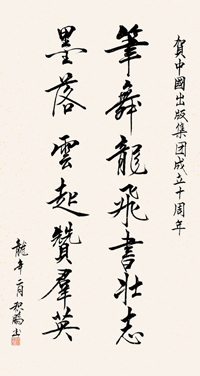 賀中國出版集团成立十周年
筆舞龍飛書壯志
墨落雲起贊群英
龍年二月